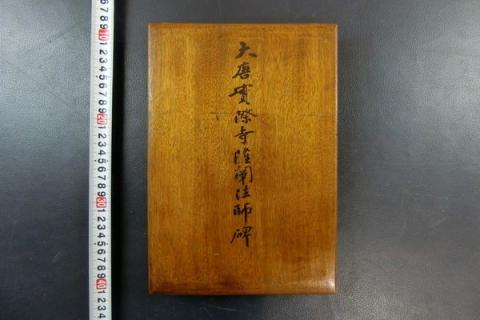 大唐實際寺隆闡法師碑
789 10 123456789 20 123456789 30 123456789 40 123